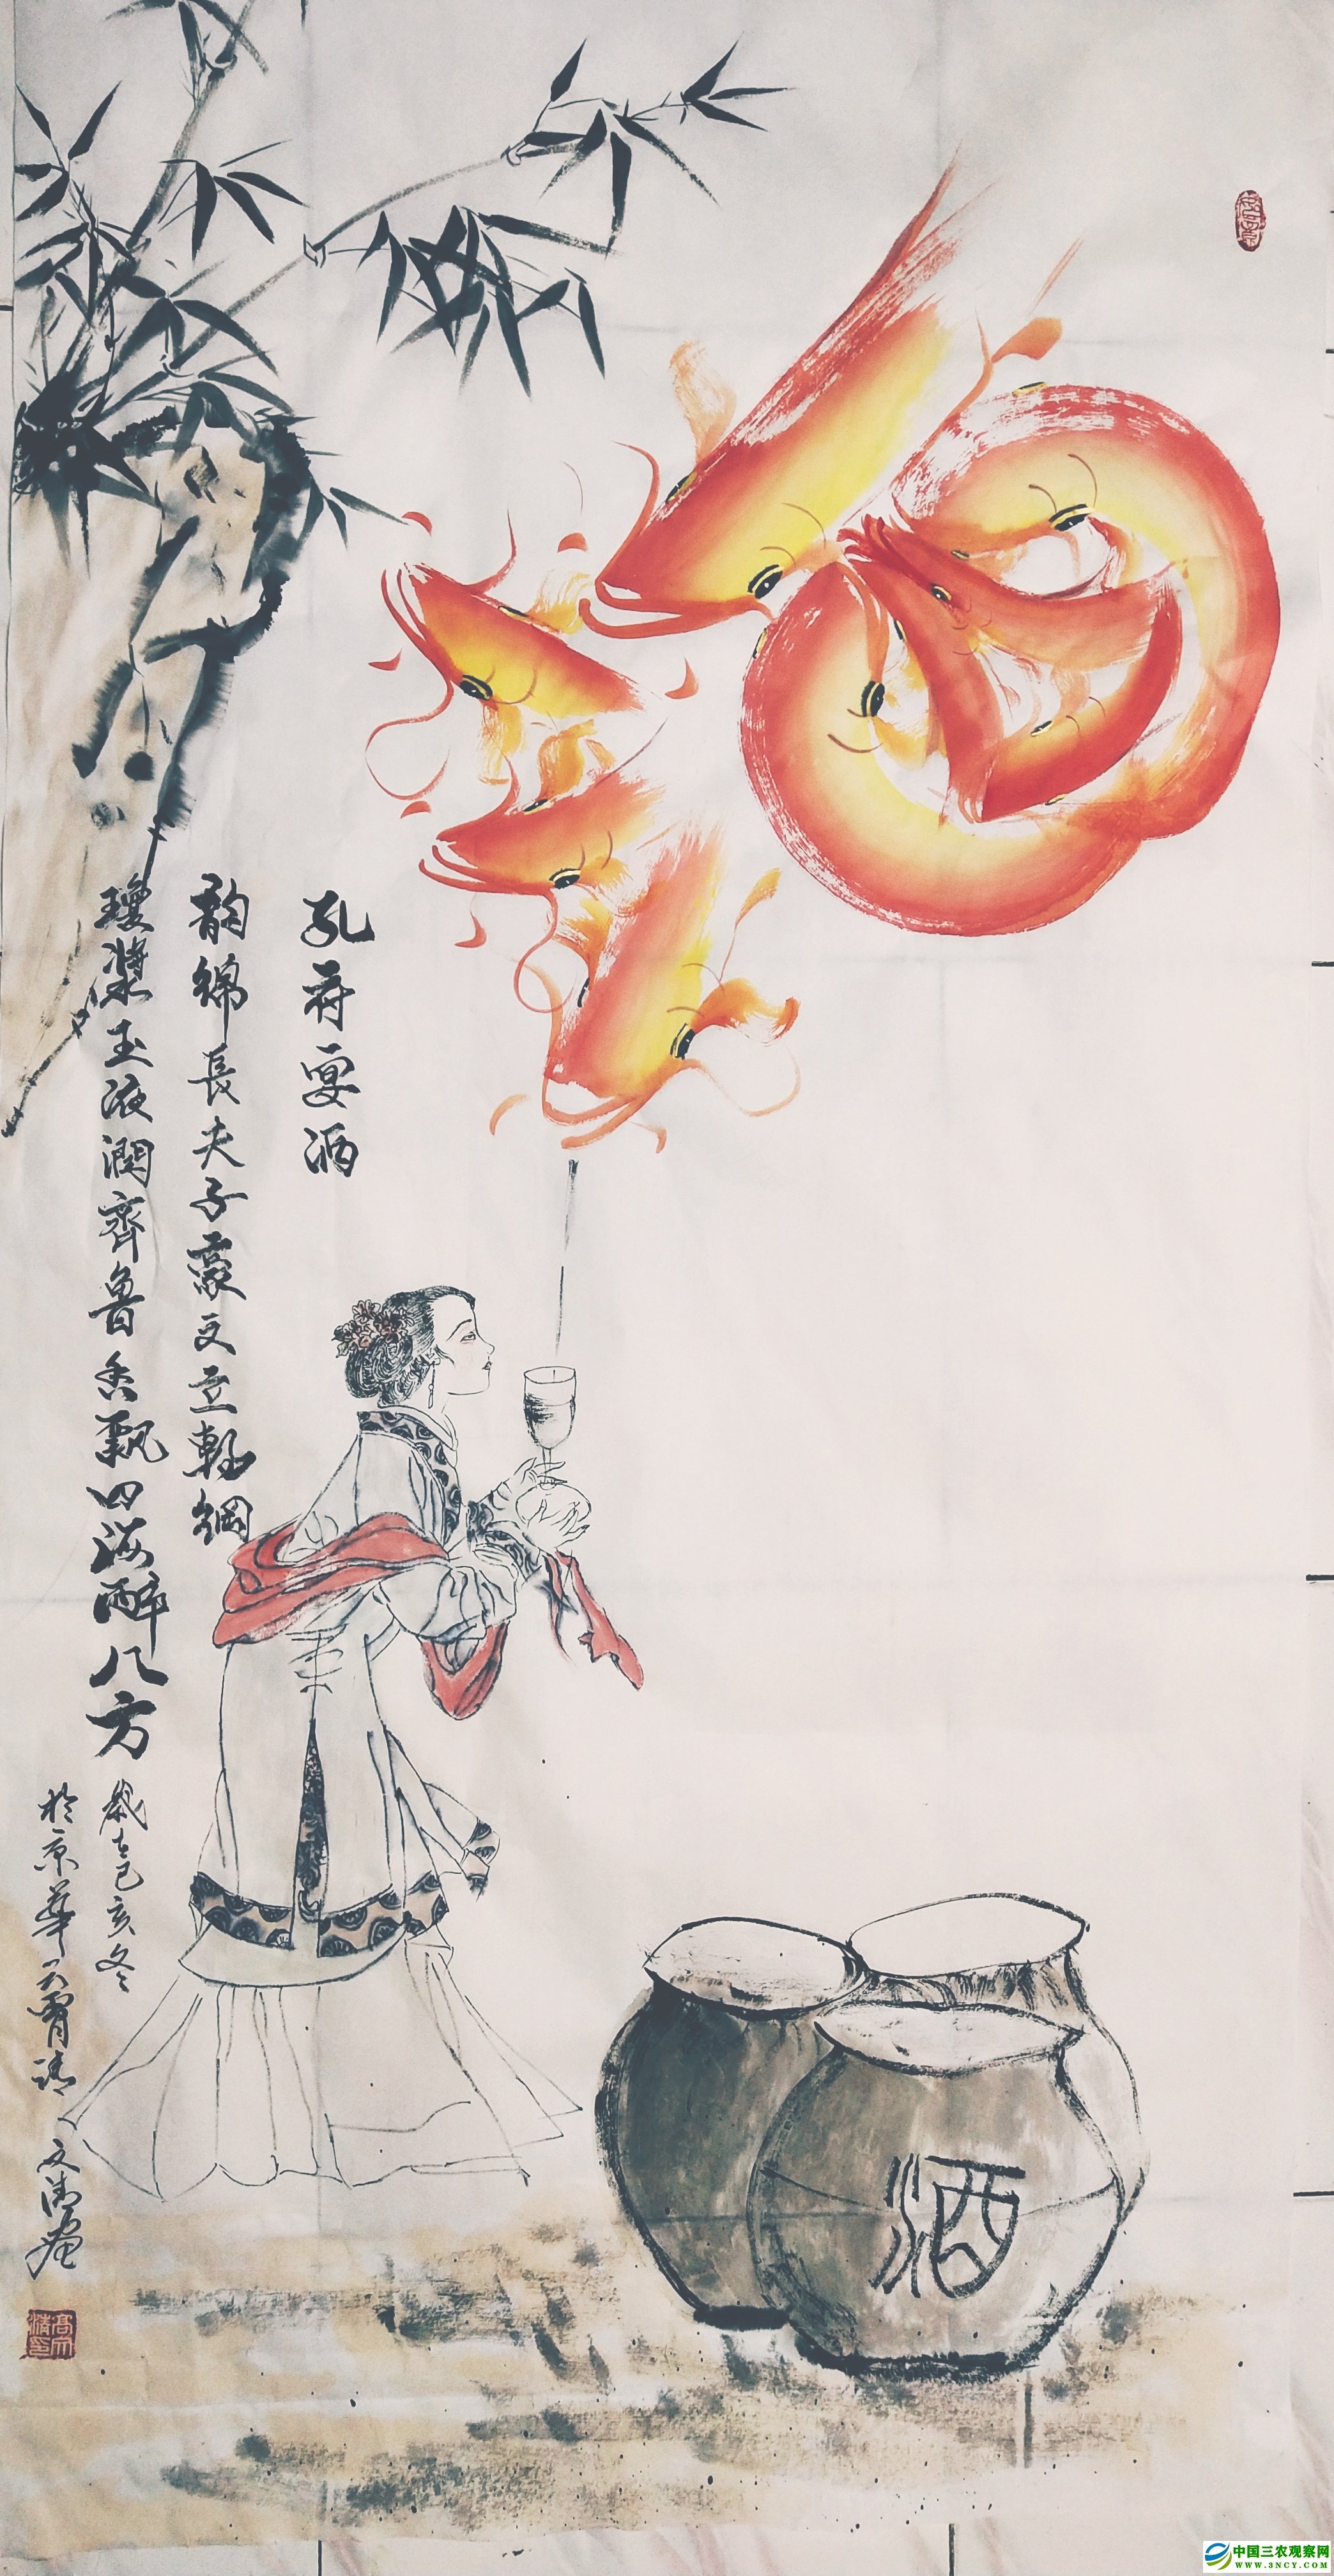 孔府宴酒
韵绵長夫子豪文立乾綱
瓊漿玉液潤齊魯香飄四海醉八方
歲在己亥冬
於京華
文清畫
酒
中国三农观察网
WWW.3NCY.COM